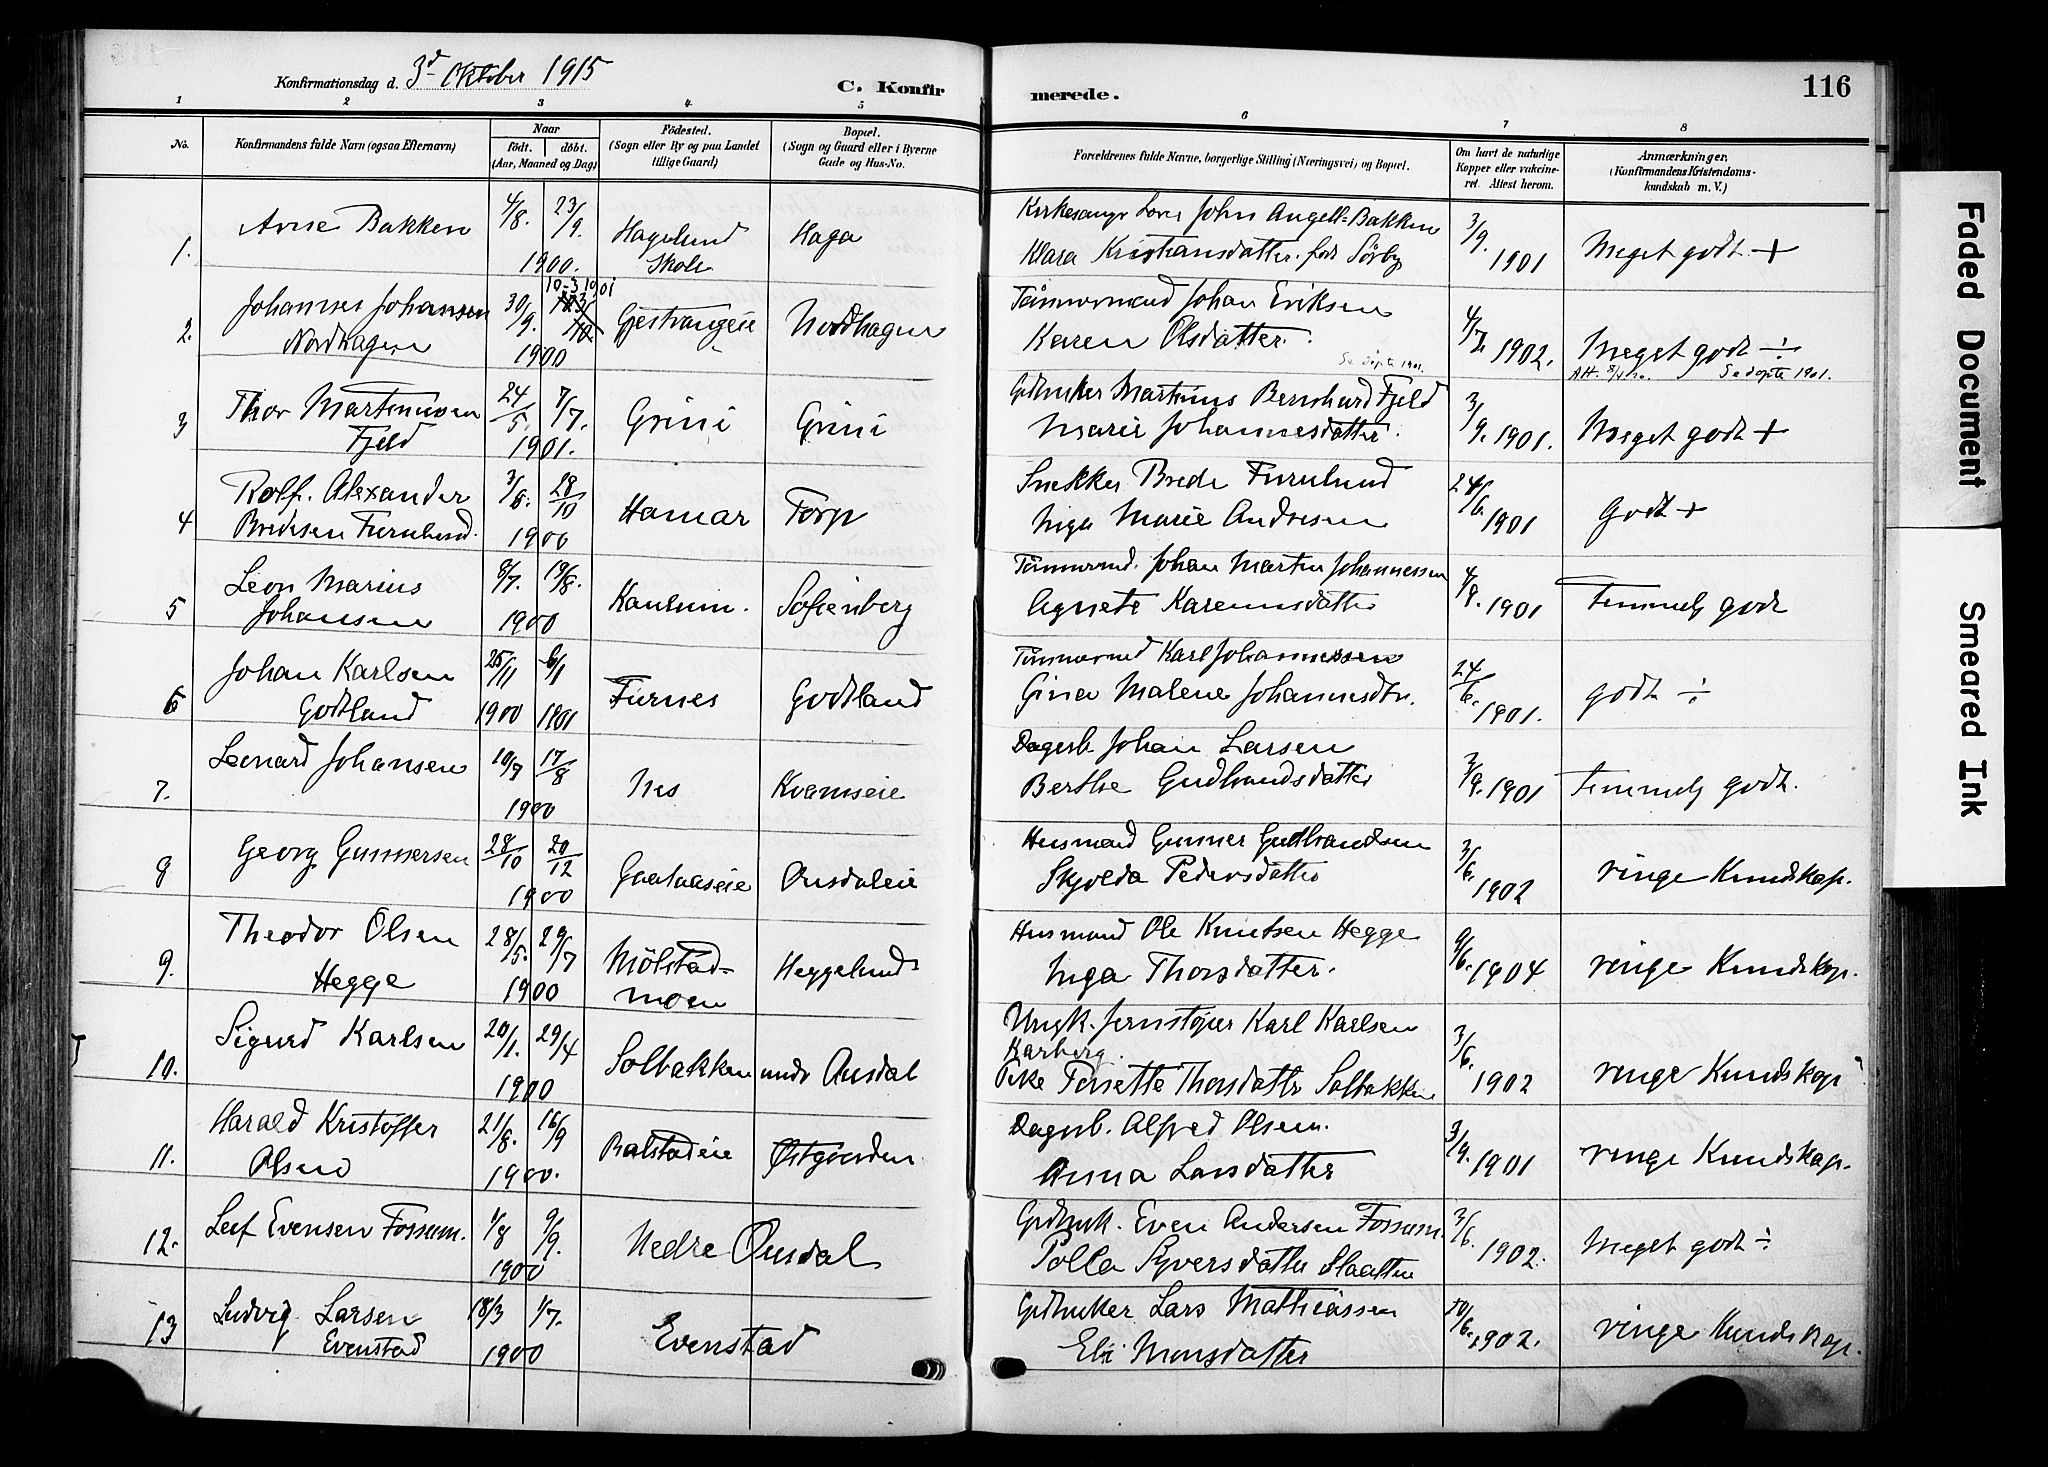 Konfirmationsdag d. 3d Oktober 1915
C. Konfirmerede.
116
1 2 3 4 5 6 7 8
No.
Konfirmandens fulde Navn (ogsaa Efternavn)
Naar
födt. döbt.
(Aar, Maaned og Dag)
Födested.
(Sogn eller By og paa Landet
tillige Gaard)
Bopæl.
(Sogn og Gaard eller i Byerne
Gade og Hus-No.
Forældrenes fulde Navne, borgerlige Stilling (Næringsvei) og Bopæl.
Om havt de naturlige
Kopper eller vakcine-
ret. Attest herom.
Anmærkninger.
(Konfirmandens Kristendoms-
kundskab m. V.)
1. Arne Bakken 4/8. 23/9. 1900. Hagelund Skole Haga
Kirkesanger Lærer John Angell-Bakken
Klara Kristiansdatter født Sörby
3/9. 1901 Meget godt +
2. Johannes Johansen Nordhagen 30/9. 1900 10-3 1901 Gjestvangeie Nordhagen
Tömmermand Johan Eriksen
Karen Olsdatter.
4/7. 1902. Meget godt ÷
Se döpte 1901.
Se döpte 1901.
3 Thor Martinusen Fjeld 24/5. 7/7. 1901. Grini Grini
Gdbruker Martinus Bernhard Fjeld
Marie Johannesdatter.
3/9. 1901. Meget godt +
4 Rolf. Alexander Bredesen Furulund. 3/8. 28/10 1900 Hamar Torp
Snekker Brede Furulund
Inga Marie Andresen
24/6. 1901 Godt +
5 Leon Marius Johansen 8/7. 19/8. 1900 Kaulum. Sofienberg
Tömmermd. Johan Martin Johannessen
Agnete Karenusdatter
4/8. 1901 Temmelig godt
6 Johan Karlsen Godtland 25/11 1900 6/1 1901 Furnes Godtland
Tömmermd Karl Johannessen
Gina Malene Johannesdtr.
24/6. 1901. godt ÷
7. Leonard Johansen 10/7 17/8 1900 Nes Kvamseie
Dagarb. Johan Larsen
Berthe Gudbrandsdatter
3/9. 1901 Temmelig godt.
8 Georg Gunnersen 28/10 20/12 1900 Gaalaaseie Onsdaleie
Husmand Gunner Gudbrandsen
Skjolda Pedersdatter
3/6. 1902 ringe Kundskap.
9. Theodor Olsen Hegge 28/5. 29/7 1900 Mölstad-moen Heggelund
Husmand Ole Knutsen Hegge
Inga Thorsdatter.
9/6. 1904 ringe Kundskap.
10. Sigurd Karlsen 20/1. 29/4 1900 Solbakken under Onsdal
Ungk. Jernstöper Karl Karlsen
Karberg.
Pike Persette Thorsdatter Solbakken
3/6. 1902 ringe Kundskap
11. Harald Kristoffer Olsen 21/8. 16/9 1900. Balstadeie Østgaarden
Dagarb. Alfred Olsen.
Anna Larsdatter
3/9. 1901 ringe Kundskap.
12. Leif Evensen Fossum. 1/8 9/9. 1900 Nedre Onsdal
Grdbruk. Even Andersen Fossum.
Polla Syversdatter Slaatten
3/6. 1902. Meget godt ÷
13 Ludvig Larsen Evenstad 18/3 1/7. 1900 Evenstad
Gdbruker Lars Mathiassen
Eli Monsdatter
10/6. 1902. ringe Kundskap.
Faded Document
Smeared Ink